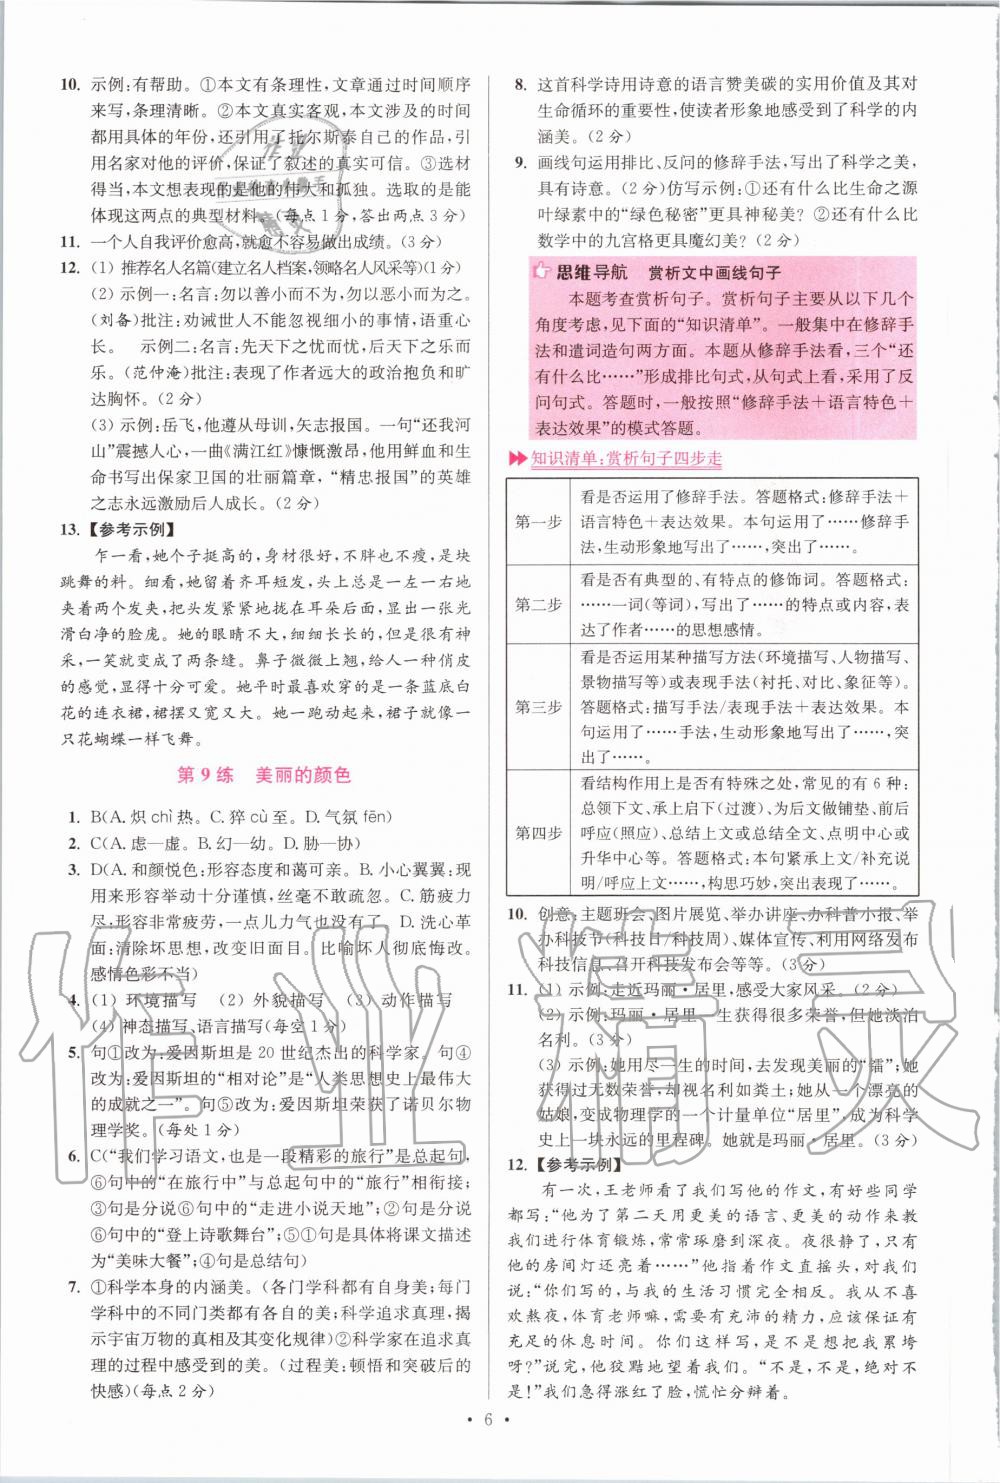 10. 示例:有帮助。①本文有条理性,文章通过时间顺序
来写,条理清晰。②本文真实客观,本文涉及的时间
都用具体的年份,还引用了托尔斯泰自己的作品,引
用名家对他的评价,保证了叙述的真实可信。③选材
得当,本文想表现的是他的伟大和孤独。选取的是能
体现这两点的典型材料。(每点1分,答出两点3分)
11. 一个人自我评价愈高,就愈不容易做出成绩。(3分)
12. (1) 推荐名人名篇(建立名人档案,领略名人风采等)(1分)
(2) 示例一:名言:勿以善小而不为,勿以恶小而为之。
(刘备)批注:劝诫世人不能忽视细小的事情,语重心
长。 示例二:名言:先天下之忧而忧,后天下之乐而
乐。(范仲淹)批注:表现了作者远大的政治抱负和旷
达胸怀。(2分)
(3) 示例:岳飞,他遵从母训,矢志报国。一句“还我河
山”震撼人心,一曲《满江红》慷慨激昂,他用鲜血和生
命书写出保家卫国的壮丽篇章,“精忠报国”的英雄
之志永远激励后人成长。(2分)
13. 【参考示例】
乍一看,她个子挺高的,身材很好,不胖也不瘦,是块
跳舞的料。细看,她留着齐耳短发,头上总是一左一右地
夹着两个发夹,把头发紧紧地拢在耳朵后面,露出一张光
滑白净的脸庞。她的眼睛不大,细细长长的,但却很有神
采,一笑就变成了两条缝。鼻子微微上翘,给人一种俏皮
的感觉,显得十分可爱。她平时最喜欢穿的是一条蓝底白
花的连衣裙,裙摆又宽又大。她一跑动起来,裙子就像一
只花蝴蝶一样飞舞。
第9练 美丽的颜色
1. B(A. 炽 chì 热。C. 猝 cù 至。D. 气氛 fēn)
2. C(A. 虑—虚。B. 幻—幼。D. 胁—协)
3. D(A. 和颜悦色:形容态度和蔼可亲。B. 小心翼翼:现
用来形容举动十分谨慎,丝毫不敢疏忽。C. 筋疲力
尽:形容非常疲劳,一点儿力气也没有。D. 洗心革
面:清除坏思想,改变旧面目。比喻坏人彻底悔改。
感情色彩不当)
4. (1) 环境描写 (2) 外貌描写 (3) 动作描写
(4) 神态描写、语言描写(每空1分)
5. 句①改为:爱因斯坦是 20 世纪杰出的科学家。句④
改为:爱因斯坦的“相对论”是“人类思想史上最伟大
的成就之一”。句⑤改为:爱因斯坦荣获了诺贝尔物
理学奖。(每处1分)
6. C(“我们学习语文,也是一段精彩的旅行”是总起句,
⑥句中的“在旅行中”与总起句中的“旅行”相衔接;
③句是分说⑥句中的“走进小说天地”;②句是分说
⑥句中的“登上诗歌舞台”;⑤句是将将课文描述
为“美味大餐”;④句是总结句)
7. ①科学本身的内涵美。(各门学科都有自身美;每门
学科中的不同门类都有各自的美;科学追求真理,揭
示宇宙万物的真相及其变化规律)②科学家在追求真
理的过程中感受到的美。(过程美:顿悟和突破后的
快感)(每点2分)
8. 这首科学诗用诗意的语言赞美碳的实用价值及其对
生命循环的重要性,使读者形象地感受到了科学的内
涵美。(2分)
9. 画线句运用排比、反问的修辞手法,写出了科学之美,
具有诗意。(2分)仿写示例:①还有什么比生命之源
叶绿素中的“绿色秘密”更具神秘美?②还有什么比
数学中的九宫格更具魔幻美?(2分)
思维导航 赏析文中画线句子
本题考查赏析句子。赏析句子主要从以下几个
角度考虑,见下面的“知识清单”。一般集中在修辞手
法和遣词造句两方面。本题从修辞手法看,三个“还
有什么比……”形成排比句式,从句式上看,采用了反
问句式。答题时,一般按照“修辞手法+语言特色+
表达效果”的模式答题。
知识清单:赏析句子四步走
第一步
看是否运用了修辞手法。答题格式:修辞手法+
语言特色+表达效果。本句运用了……修辞手
法,生动形象地写出了……,突出了……。
第二步
看是否有典型的、有特点的修饰词。答题格式:
……一词(等词),写出了……的特点或内容,表
达了作者……的思想感情。
第三步
看是否运用某种描写方法(环境描写、人物描写、
景物描写等)或表现手法(衬托、对比、象征等)。
答题格式:描写手法/表现手法+表达效果。本
句运用了……手法,生动形象地写出了……,突
出了……。
第四步
看结构作用上是否有特殊之处,常见的有6种:
总领下文、承上启下(过渡)、为后文做铺垫、前后
呼应(照应)、总结上文或总结全文、点明中心或
升华中心等。答题格式:本句紧承上文/补充说
明/呼应上文……,构思巧妙,突出表现了……。
10. 创意:主题班会、图片展览、举办讲座、办科普小报、举
办科技节(科技日/科技周)、媒体宣传、利用网络发布
科技信息、召开科技发布会等等。(3分)
11. (1) 示例:走近玛丽·居里,感受大家风采。(2分)
(2) 示例:玛丽·居里一生获得很多荣誉,但她淡泊
名利。(3分)
(3) 示例:她用尽一生的时间,去发现美丽的“镭”;她
获得过无数荣誉,却视名利如粪土;她从一个漂亮的
姑娘,变成物理学的一个计量单位“居里”,成为科学
史上一块永远的里程碑。她就是玛丽·居里。(3分)
12. 【参考示例】
有一次,王老师看了我们写他的作文,有好些同学
都写:“他为了第二天用更美的语言、更美的动作来教
我们进行体育锻炼,常常琢磨到深夜。夜很静了,只有
他的房间灯还亮着……”他指着作文直摇头,对我们
说:“你们写的,与我的生活习惯完全相反。我从不喜
欢熬夜,体育老师嘛,需要有充沛的精力,应该保证有
充足的休息时间。你们这样写,是不是想把我累垮
呀?”说完,他狡黠地望着我们。“不是,不是,绝对不
是!”我们急得涨红了脸,慌忙分辩着。
· 6 ·
作业精灵